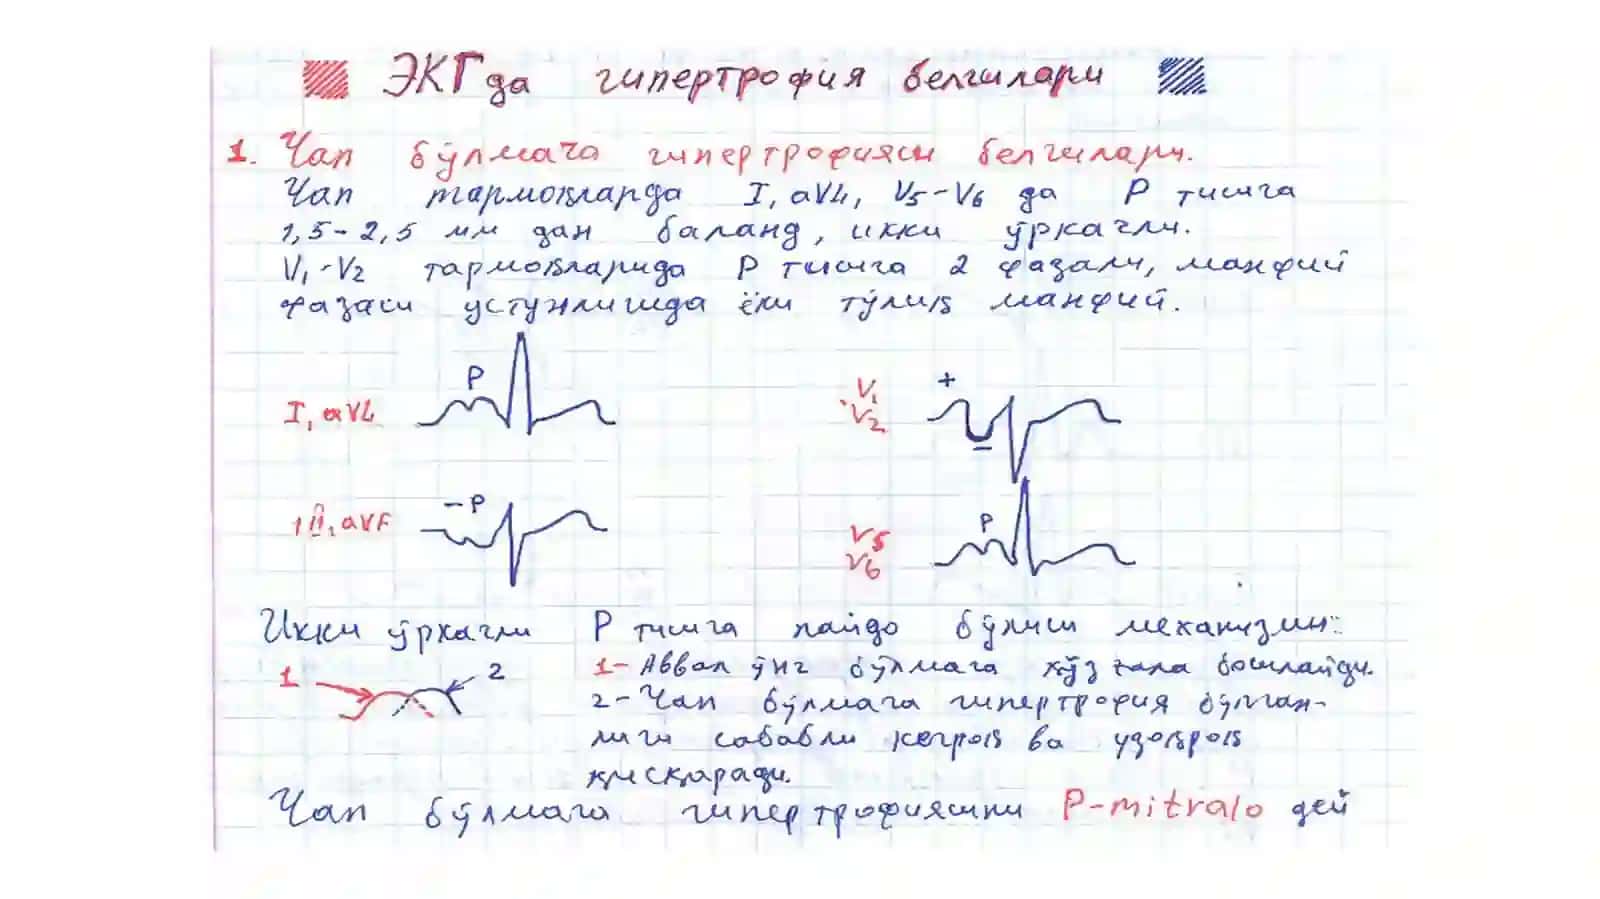 ЭКГда гипертрофия белгилари
1. Чап бўлмача гипертрофияси белгилари.
Чап тармоқларда I, aVL, V5-V6 да P тишча
1,5-2,5 мм дан баланд, икки ўркачли.
V1-V2 тармоқларида P тишча 2 фазали, манфий
фазаси устунлигида ёки тўлиқ манфий.
P
I, aVL
+
V1
V2
-
-P
III, aVF
P
V5
V6
Икки ўркачли P тишча пайдо бўлиш механизми:
1 2
1- Аввал ўнг бўлмача қўзғала бошлайди.
2- Чап бўлмача гипертрофия бўлган-
лиги сабабли кечроқ ва узоқроқ
қисқаради.
Чап бўлмача гипертрофиясини P-mitralo дей